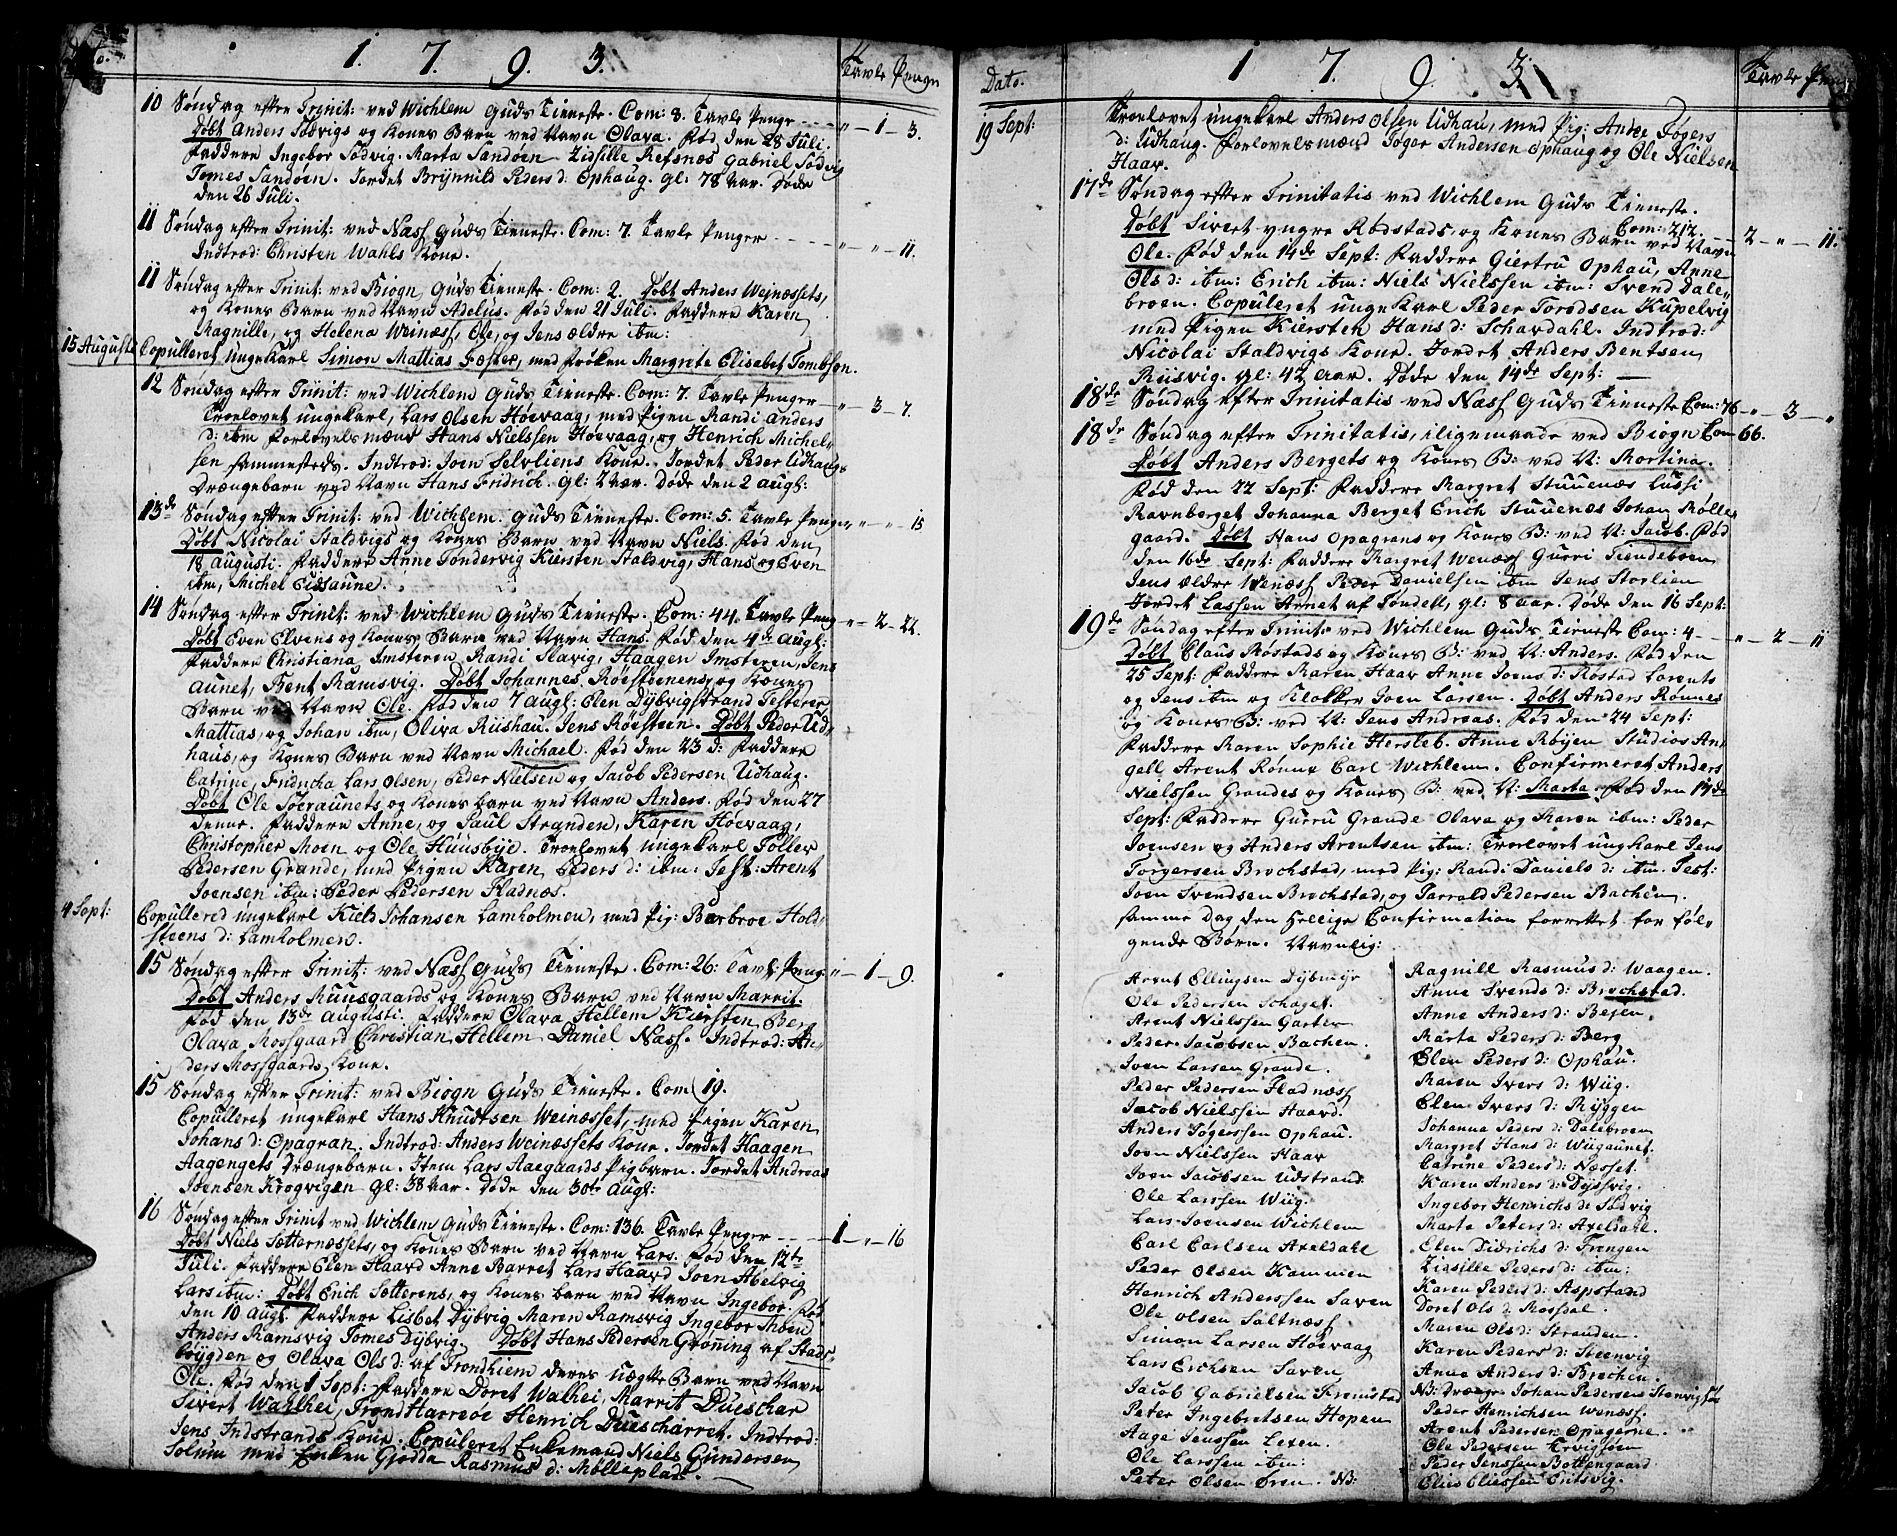 1. 7. 9. 3. Tavle Penge
10 Søndag efter Trinit: ved Wichlem Guds Tieneste. Com: 8. Tavle Penge " – 1 – 3.
Døbt Anders Sødvigs og Kones Barn ved Navn Olava. Fød den 28 Juli.
Faddere Ingebor Sødvig. Marta Sandøen Zidsille Refsnæs Gabriel Sødvig
Tomes Sandøen. Jordet Brynnild Peders d: Ophaug. gl: 78 Aar. Døde
den 26 Juli.
11 Søndag efter Trinit: ved Næss Guds Tieneste. Com: 7. Tavle Penger " – " – 11.
Indtrod: Christen Wahls Kone.
11 Søndag efter Trinit: ved Biogn Guds Tieneste. Com: 2. Døbt Anders Weinæssets,
og Kones Barn ved Navn Adelus. Fød den 21 Juli. Faddere Karen
Magnille, og Helena Weinæss, Ole, og Jens ældre ibm:
15 Auguste Copulleret ungekarl Simon Mattias Fæster, med Frøken Margrete Elisabet Tombson.
12 Søndag efter Trinit: ved Wichlem Guds Tieneste. Com: 7. Tavle Penger " – 3 – 7.
Troelovet ungekarl, Lars Olsen Høevaag, med Pigen Randi Anders
d: ibm Forlovelsmænd Hans Nielssen Høevaag, og Henrich Michel-
sen sammesteds. Indtrod: Joen Selvliens Kone. Jordet Peder Udhaugs
Drængebarn ved Navn Hans Fridrich. gl: 2 Aar. Døde den 2 Augl:
13de Søndag efter Trinit: ved Wichlem. Guds Tieneste. Com: 5. Tavle Penge " – " – 15
Døbt Nicolai Staldvigs og Kones Barn ved Navn Niels. Fød den
18 Augusti. Faddere Anne Tøndervig Kiersten Staldvig, Hans og Even
ibm, Michel Eidsaune.
14 Søndag efter Trinit: ved Wichlem Guds Tieneste. Com: 44. Tavle Peng " – 2 – 22.
Døbt Even Elvens og Kones Barn ved Navn Hans. Fød den 4de Augl:
Faddere Christiana Imsteren, Randi Slavig, Haagen Imsteren, Jens
Aunet, Bent Ramsvig. Døbt Johannes Roesteenens og Kones
Barn ved Navn Ole. Fød den 7 Augl: Elen Dybvigstrand Testerer
Mattias, og Johan ibm, Oliva Riishau. Jens Røesteen. Døbt Peder Ud-
haus, og Kones Barn ved Navn Michael. Fød den 23 d: Faddere
Catrine, Fridricha Lars Olsen, Peder Nielsen og Jacob Pedersen Udhaug.
Døbt Ole Søeraunets og Kones Barn ved Navn Anders. Fød den 27
denne. Faddere Anne, og Paul Stranden, Karen Høevaag,
Christopher Moen og Ole Huusbye. Troelovet ungekarl Toller
Pedersen Grande, med Pigen Karen Peders d: ibm: Test: Arent
Joensen ibm: Peder Pedersen Fladnæs.
4 Sept: Copullered ungekarl Kield Johansen Lamholmen, med Pig: Barbroe Hold-
steens d: Lamholmen.
15 Søndag efter Trinit: ved Næss Guds Tieneste. Com: 26: Tavl: Peng " – 1 – 9.
Døbt Anders Muusgaards og Kones Barn ved Navn Marrit.
Fød den 13de Augusti. Faddere Olava Hellem Kiersten Be,
Olava Mossgaard Christian Hellem Daniel Næss. Indtrod: An-
ders Mossgaards Kone.
15 Søndag efter Trinit: ved Biogn Guds Tieneste. Com 19.
Copulleret ungekarl Hans Knudtsen Weinæsset, med Pigen Karen
Johans d: Opagran. Indtrod: Anders Weinæssets Kone. Jordet Haagen
Aagengets Drængebarn. Item Lars Aaegaards Pigbarn. Jordet Andreas
Joensen Krogvigen gl: 38 Aar. Døde den 30te Augl:
16 Søndag efter Trinit ved Wichlem Guds Tieneste. Com: 136. Tavle Penger 1 – " – 16
Døbt Niels Sætternæssets, og Kones Barn ved Navn Lars. Fød den 12te
Juli. Faddere Elen Haard Anne Barret Lars Haard Joen Abelvig
Lars ibm: Døbt Erich Sætterens, og Kones barn ved Navn Ingebor. Fød
den 10 Augl. Faddere Lisbet Dybvig Maren Ramsvig Ingebor Thoen
Anders Ramsvig Tomes Dybvig. Døbt Hans Pedersen Grøning af Stads-
bøygden og Olava Ols d: af Trondhiem deres uægte Barn ved Navn
Ole. Fød den 1 Sept: Faddere Doret Walhei, Marrit Dueschar
Sivert Walhei, Trond Harreøe Henrich Duescharret. Indtrod:
Jens Indstrands Kone. Copuleret Enkemand Niels Gundersen
Solum med Enken Gjødda Rasmus d: Mølleplads.
Dato. 1 7 9 3 Tavle Penge
19 Sept: Troelovet ungekarl Anders Olsen Udhau, med Pig: Anne Tøgers
d: Udhaug. Forlovelsmænd Tøger Andersen Ophaug og Ole Nielsen
Haar.
17de Søndag efter Trinitatis ved Wichlem Guds Tieneste.
Com: 212. 2 – " – 11.
Døbt Sivert yngre Rødstads og Kones Barn ved Navn
Ole. Fød den 14de Sept: Faddere Giertru Ophau, Anne
Ols d: ibm: Erich ibm: Niels Nielssen ibm: Svend Dale-
broen. Copuleret unge Karl Peder Tordsen Kupelvig
med Pigen Kiersten Hans d: Schavdahl. Indtrod:
Nicolai Staldvigs Kone. Jordet Anders Bentsen
Riisvig. gl: 42 Aar. Døde den 14de Sept:
18de Søndag efter Trinitatis ved Næss Guds Tieneste Com: 76 " – 3 – "
18de Søndag efter Trinitatis, iligemaade ved Biogn Com 66.
Døbt Anders Bergets og Kones B: ved N: Mortina.
Fød den 22 Sept: Faddere Margret Stuuenæs Lussi
Ravnberget Johanna Berget Erich Stuuenæs Johan Mølle
gaard. Døbt Hans Opagrans og Kones B: ved N: Jacob. Fød
den 16de Sept: Faddere Margret Wenæss Gurri Tiendeboen
Jens ældre Wenæss Peder Danielsen ibm Jens Storlien
Jordet Lassen Arnet af Tøndell, gl: 8 aar. Døde den 16 Sept:
19de Søndag efter Trinit: ved Wichlem Guds Tieneste Com: 4 " – 2 – 11
Døbt Claus Røstads og Kones B: ved N: Anders. Fød den
25 Sept: Faddere Karen Haar Anne Joens d: Røstad Lorents
og Jens ibm og Klokker Joen Larsen. Døbt Anders Rønnes
og Kones B: ved N: Jens Andreas. Fød den 24 Sept:
Faddere Maren Sophie Hersleb. Anne Røyen Studios An-
gell Arent Rønne Carl Wichlem. Confirmeret Anders
Nielssen Grandes og Kones B: ved N: Marta. Fød den 19de
Sept: Faddere Gurru Grande Olava og Karen ibm: Peder
Joensen og Anders Arentsen ibm: Troelovet ungkarl Jens
Torgersen Brochstad, med Pig: Randi Daniels d: ibm. Test:
Joen Svendsen Brochstad, og Jarrold Pedersen Bachen.
samme Dag den Hellige Confirmation forrettet for føl-
gende Børn. Navnlig:
Arent Ellingsen Dybmyr
Ole Pedersen Schaget.
Arent Nielssen Garten
Peder Jacobsen Bachen.
Joen Larsen Grande.
Peder Pedersen Fladnæss
Jacob Nielssen Haard.
Anders Tøgerssen Ophau.
Joen Nielssen Haar
Joen Jacobsen Udstrand.
Ole Larssen Wiig.
Lars Joensen Wichlem
Carl Carlsen Axeldahl
Peder Olsen Kammen
Henrich Anderssen Saven
Ole Olsen Saltnæss
Simon Larsen Høevaag
Lars Erichsen Saven
Jacob Gabrielsen Fremstad
Peter Ingebretsen Hopen
Aage Jenssen Lexen.
Ole Larssen ibm:
Peter Olsen Øren. NB:
Ragnill Rasmus d: Waagen.
Anne Svends d: Brochstad.
Anne Anders d: Bejen.
Marta Peders d: Berg
Elen Peders d: Ophau.
Maren Ivers d: Wiig.
Elen Ivers d: Ryggen
Johanna Peders d: Dalebroen
Margret Hans d: Wiigaunet.
Catrine Peders d: Næsset.
Karen Anders d: Dybvig.
Ingebor Henrichs d: Sødvig
Marta Peters d: Axeldahl.
Elen Didrichs d: Frengen
Zidsille Peders d: ibm:
Karen Peders d: Aspstand
Doret Ols d: Mossdal.
Maren Ols d: Stranden.
Karen Peders d: Steenvig
Anna Anders d: Brechen.
NB: Drænge Johan Pedersen Stenvig
Peder Henrichsen Wenæss.
Arent Pedersen Opagerne.
Ole Pedersen
Peder Jenssen Bottengaard.
Elias Eliessen Eritsvig.